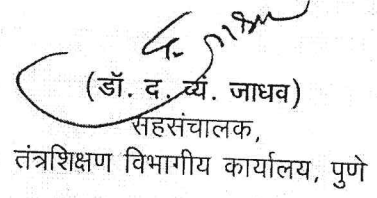 (डॉ. द. व्यं. जाधव)
सहसंचालक,
तंत्रशिक्षण विभागीय कार्यालय, पुणे